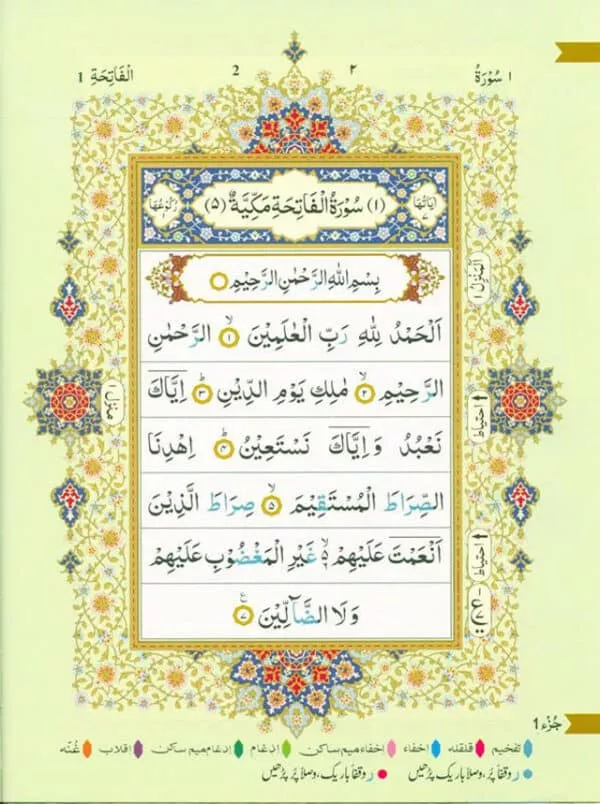 سُوْرَةُ ١ ٢ 2 اَلْفَاتِحَةِ 1
اٰيَاتُهَا ٧ (١) سُوْرَةُ الْفَاتِحَةِ مَكِّيَّةٌ (٥) رُكُوْعُهَا
بِسْمِ اللّٰهِ الرَّحْمٰنِ الرَّحِيْمِ
اَلْحَمْدُ لِلّٰهِ رَبِّ الْعٰلَمِيْنَ ۙ ١ الرَّحْمٰنِ
الرَّحِيْمِ ۙ ٢ مٰلِكِ يَوْمِ الدِّيْنِ ؕ ٣ اِيَّاكَ
نَعْبُدُ وَ اِيَّاكَ نَسْتَعِيْنُ ؕ ٤ اِهْدِنَا
الصِّرَاطَ الْمُسْتَقِيْمَ ۙ ٥ صِرَاطَ الَّذِيْنَ
اَنْعَمْتَ عَلَيْهِمْ ۙ۬ ٦ غَيْرِ الْمَغْضُوْبِ عَلَيْهِمْ
وَلَا الضَّآلِّيْنَ ۧ ٧
اَلْمَنْزِلُ ١
منزل ١
احتیاط
احتیاط
جُزْء 1
تفخیم قلقله إخفاء إخفاء میم ساکن إدغام إدغام میم ساکن إقلاب غُنّه
ر وقفاً پُر، وصلاً باریک پڑھیں ر وقفاً باریک، وصلاً پُر پڑھیں